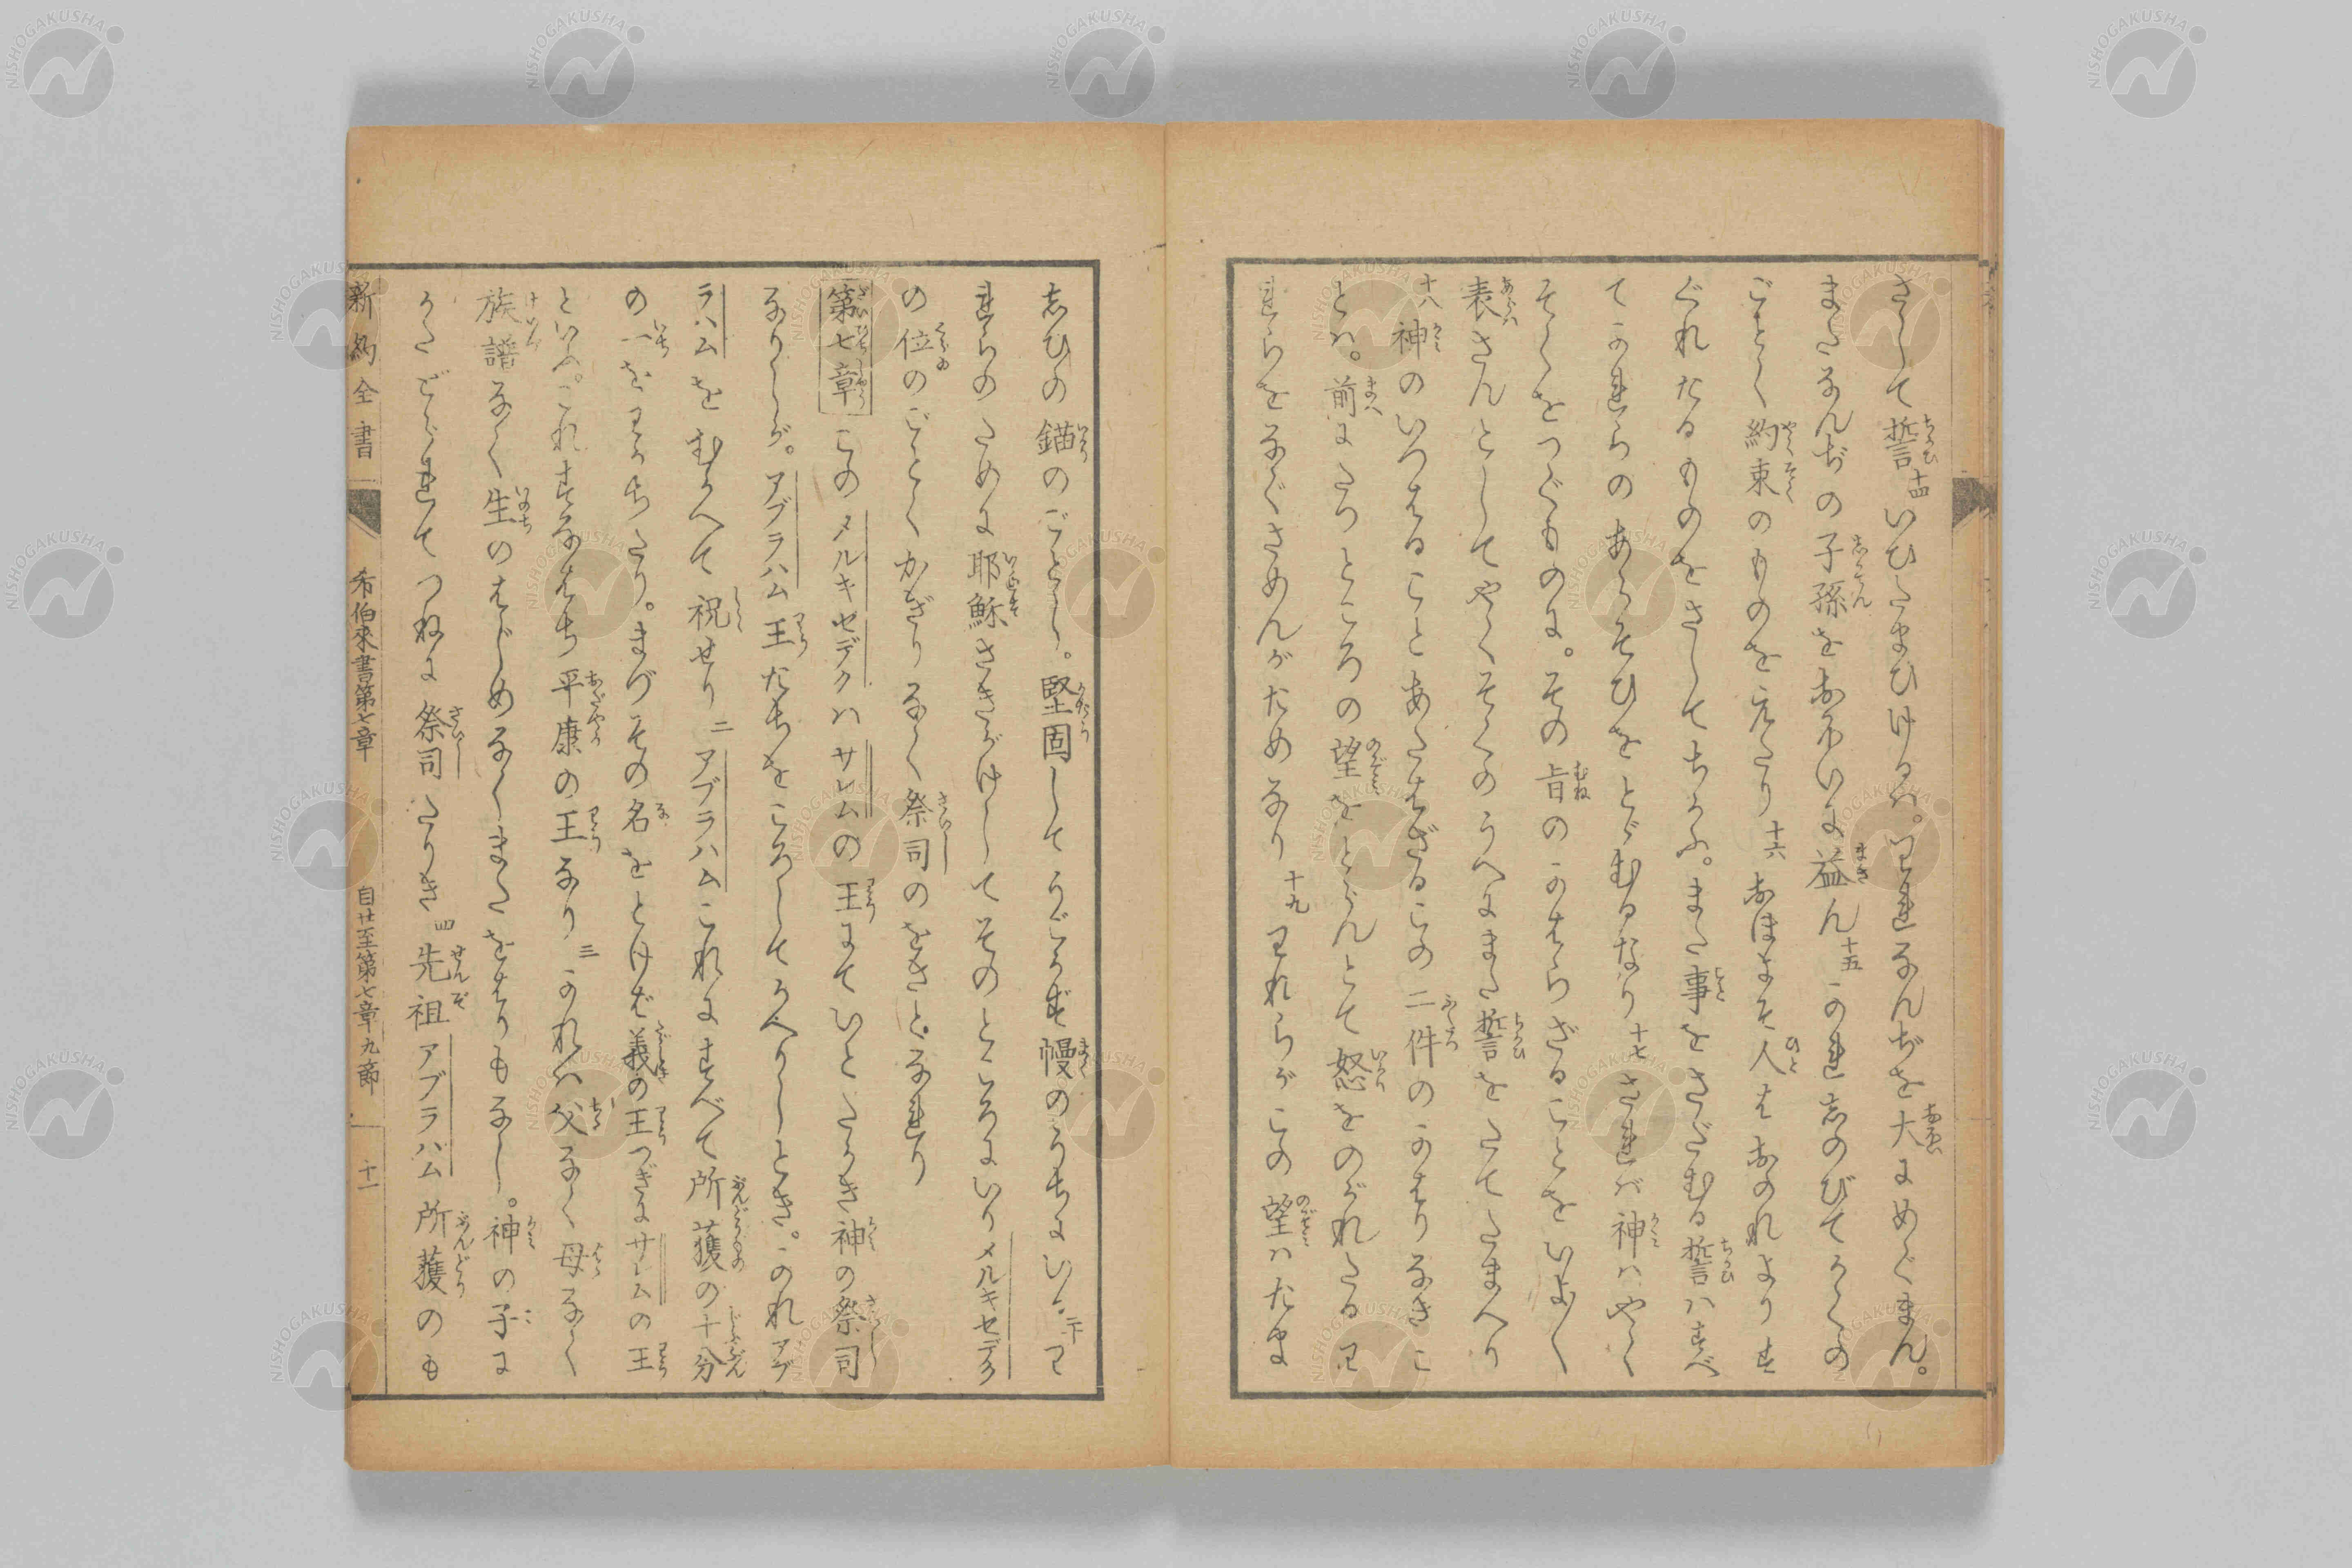 さして誓十四いひたまひけるハ。われなんぢを大にめぐまん。
またなんぢの子孫をおほいに益ん十五かれ志のびてかくの
ごとく約束のものをえたり十六おほよそ人はおのれよりす
ぐれたるものをさしてちかふ。また事をさだむる誓ハすべ
てかれらのあらそひをとゞむるなり十七されバ神ハやく
そくをつぐものに。その旨のかはらざることをいよ〱
表さんとしてやくそくのうへにまた誓をたてたまへり
十八神のいつはることあたはざるこの二件のかはりなきこ
とハ。前にたつところの望をとらんとて怒をのがれたるわ
れらをなぐさめんがためなり十九われらがこの望ハたま
志ひの錨のごとし。堅固してうごかず幔のうちにいる二十わ
れらのために耶穌さきがけしてそのところにいりメルキセデク
の位のごとくかぎりなく祭司のをさとなれり
第七章 このメルキセデクハサレムの王にていとたかき神の祭司
なりしが。アブラハム王たちをころしてかへりしとき。かれアブ
ラハムをむかへて祝せり二アブラハムこれにすべて所獲の十分
の一をわかちたり。まづその名をとけば義の王つぎにサレムの王
といふ。これすなはち平康の王なり三かれハ父なく母なく
族譜なく生のはじめなくまたをはりもなし。神の子に
かたどられてつねに祭司たりき四先祖アブラハム所獲のも
新約全書 希伯來書第七章 自廿至第七章九節 十一